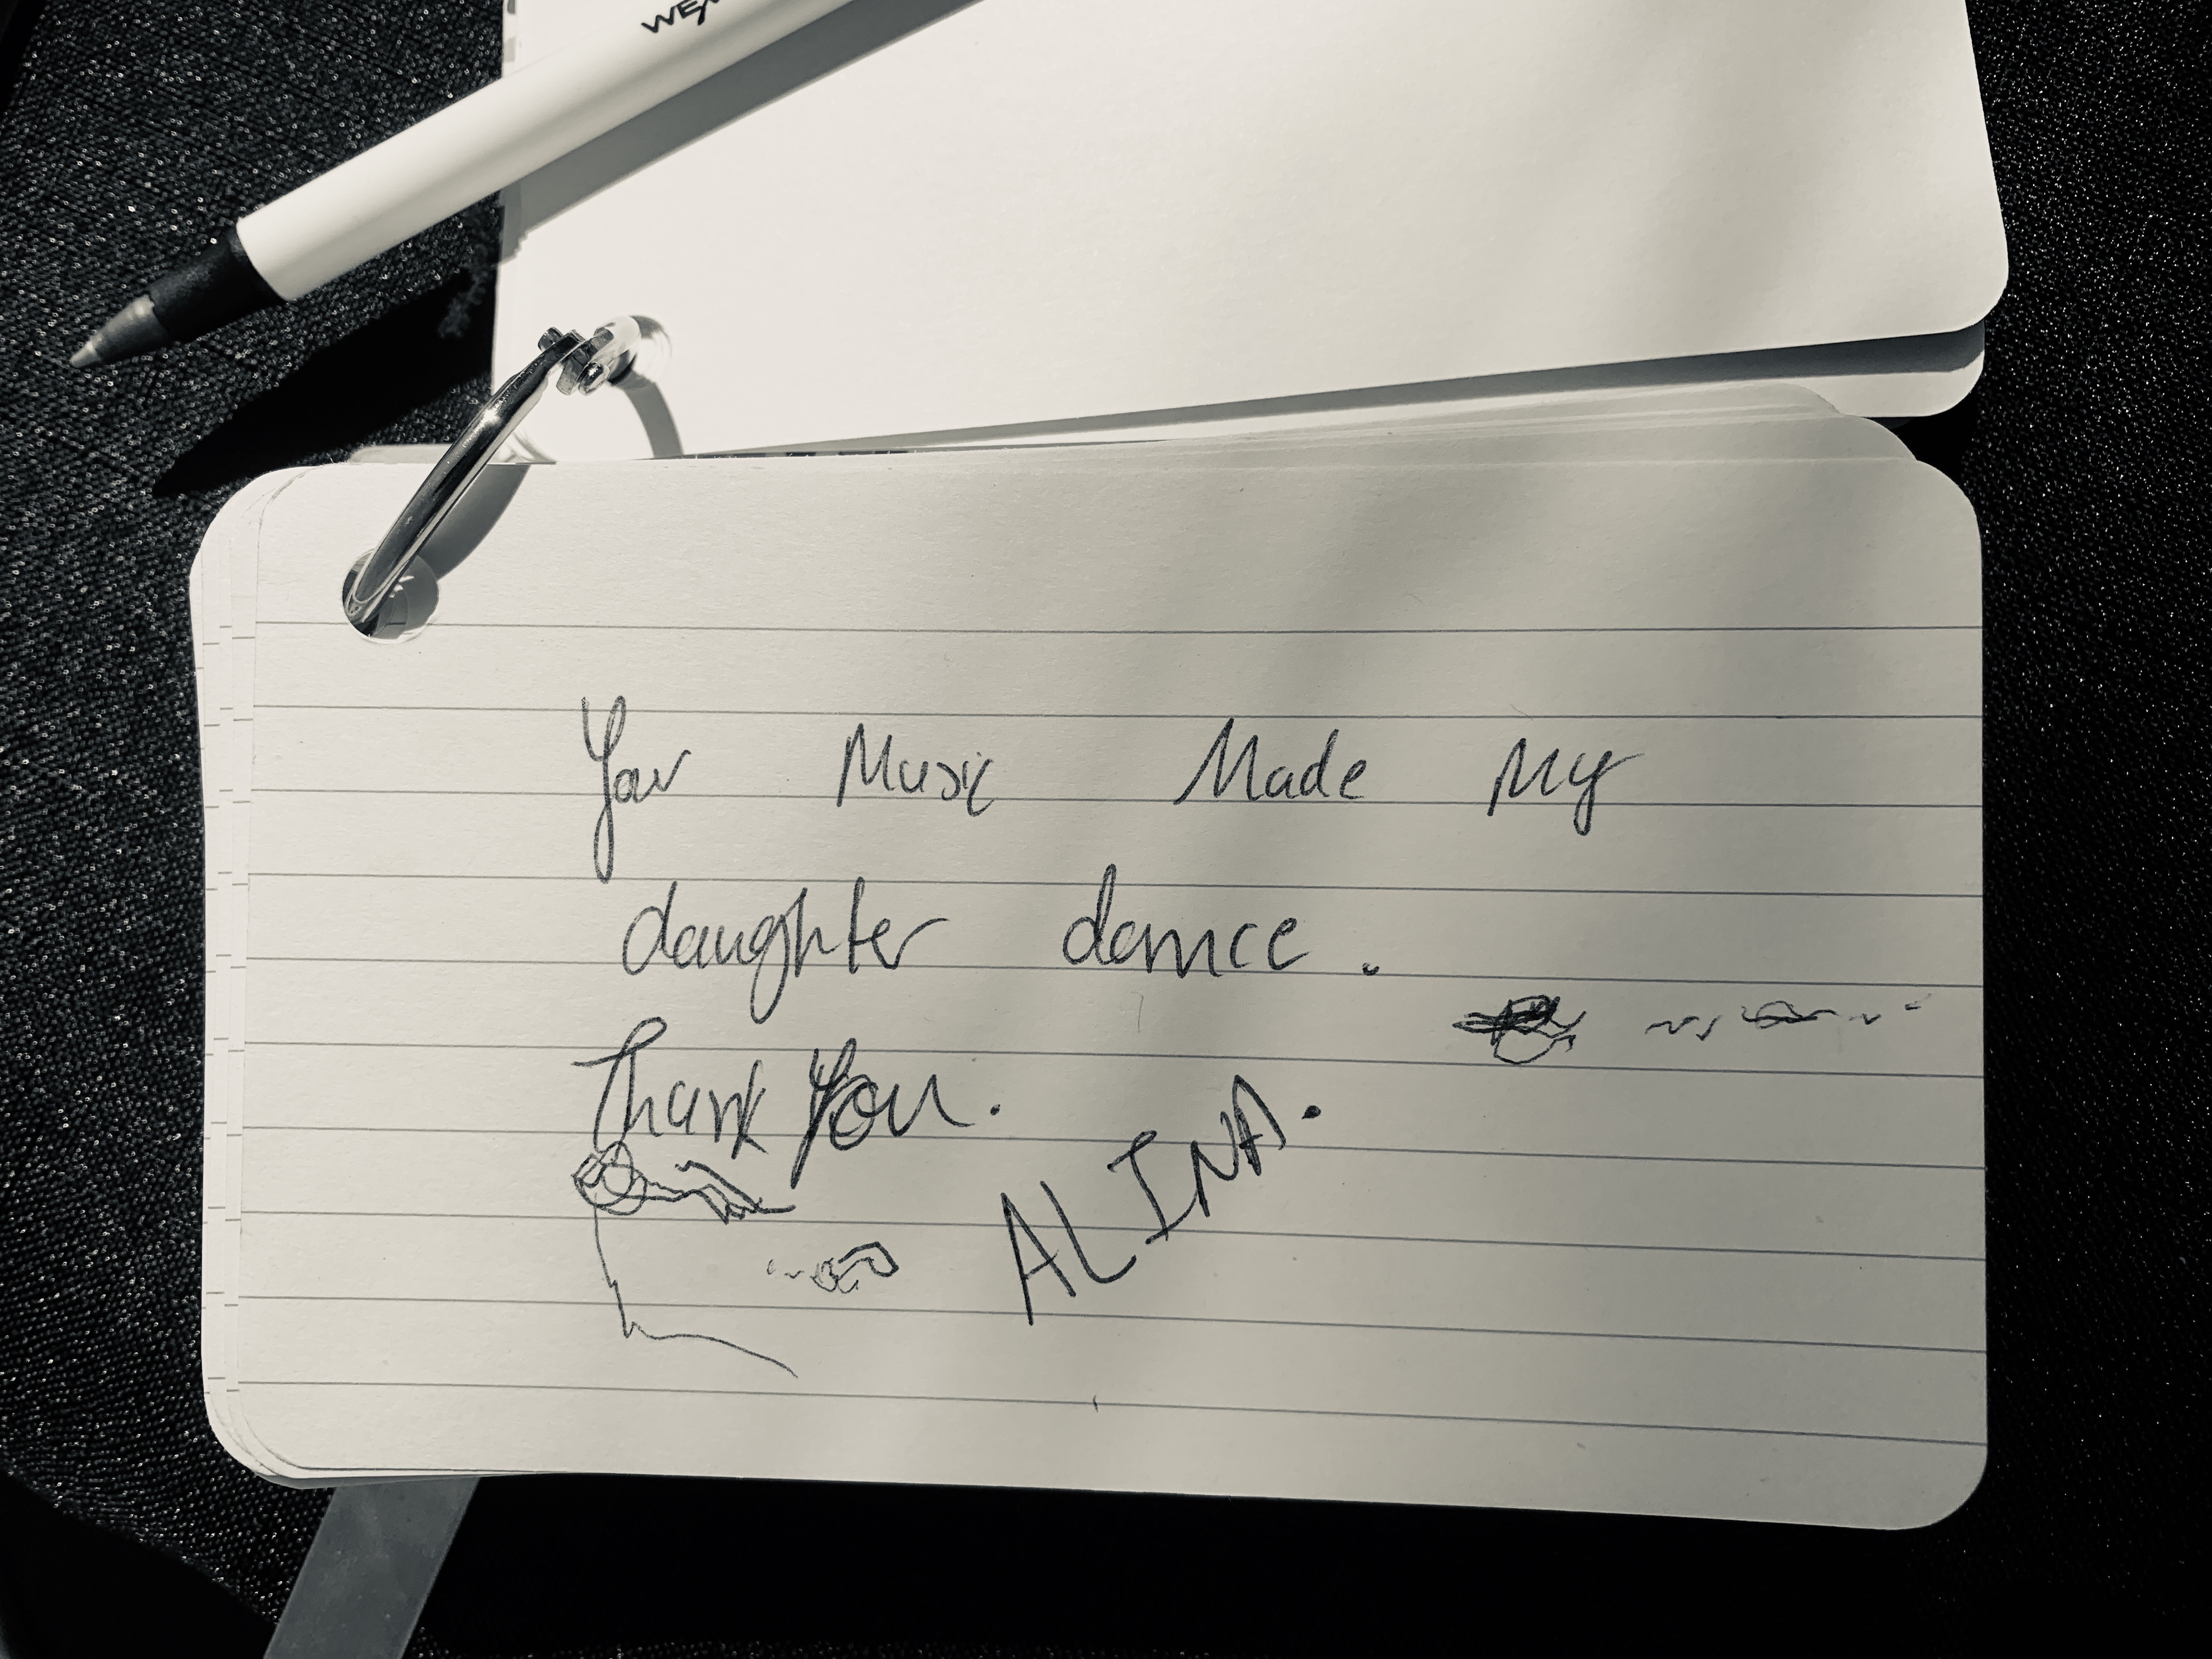 Your Music Made My
daughter dance.
Thank You.
ALINA.